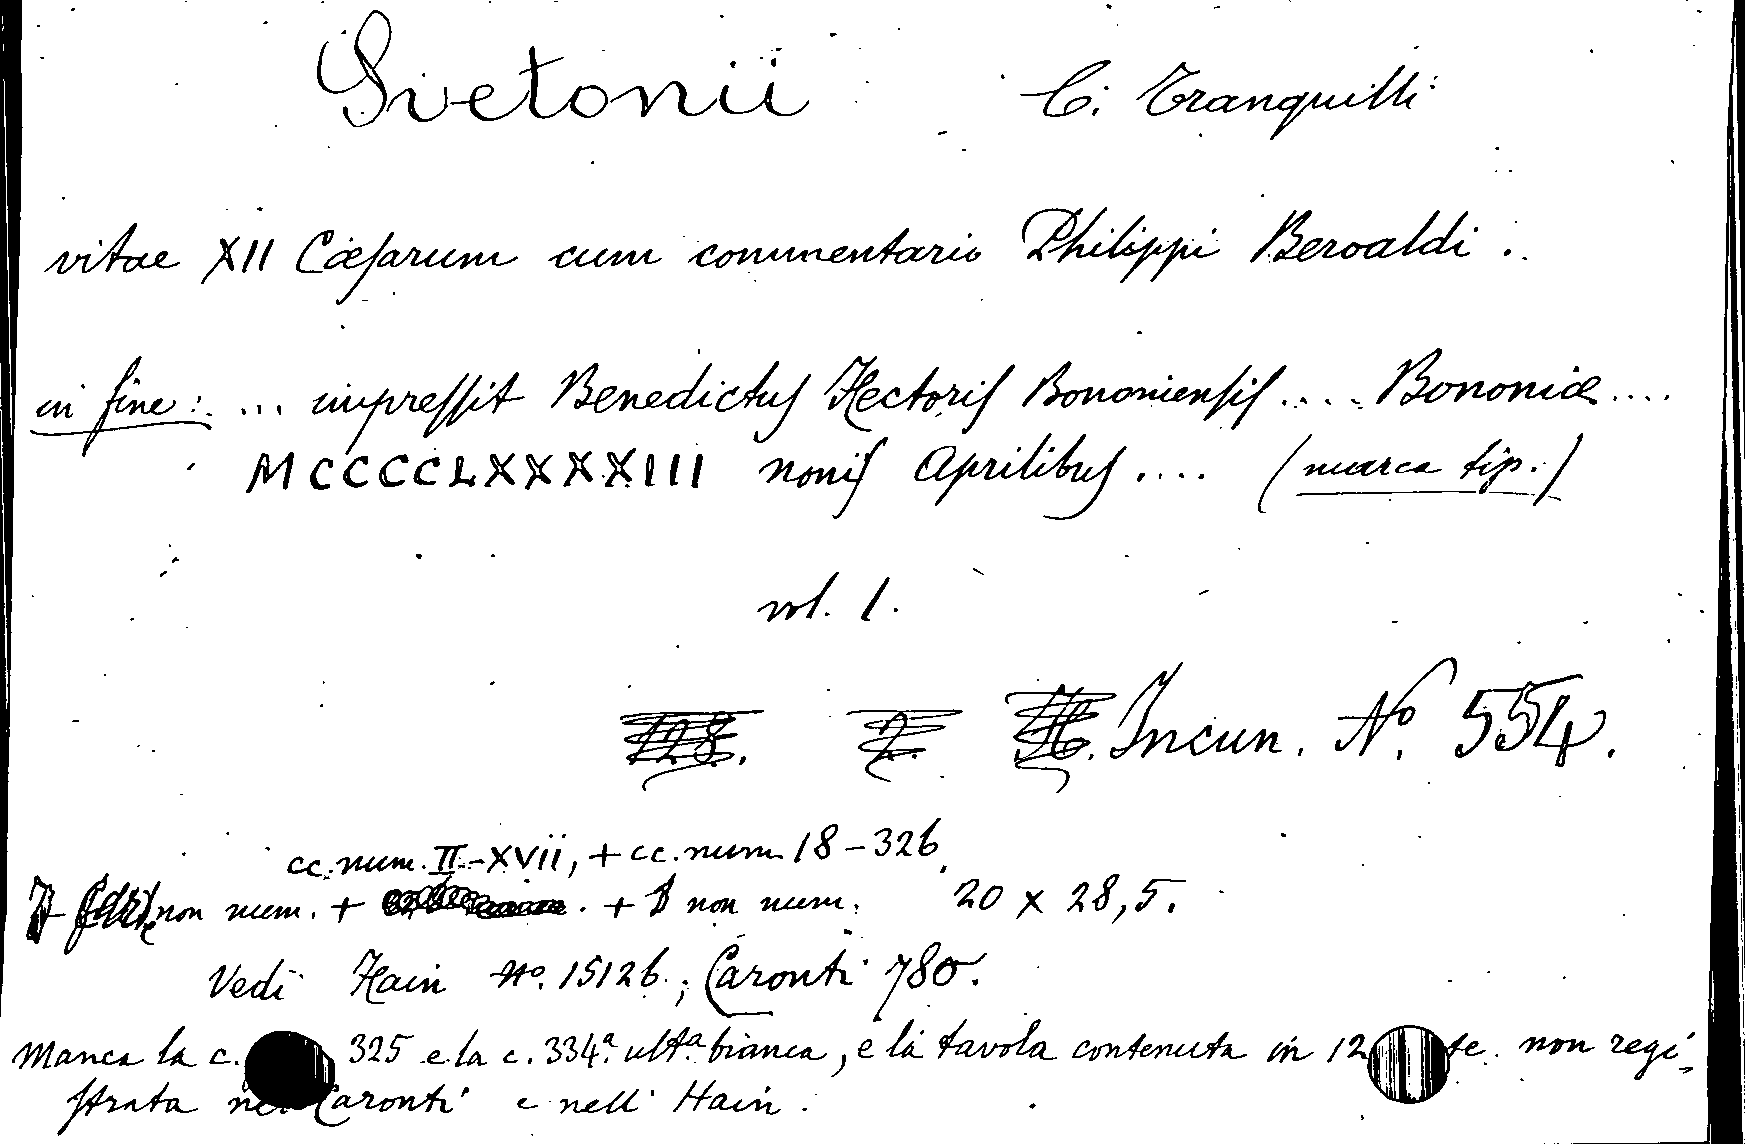 Svetonii C. Tranquilli
vitae XII Cæsarum cum commentario Philippi Beroaldi ..
in fine: ... impressit Benedictus Hectoris Bononiensis .... Bononiæ ....
MCCCCLXXXXIII nonis Aprilibus .... (marca tip.)
vol. 1.
128. 2. Incun. Nº. 554.
cc. num. II-XVII, + cc. num. 18-326
non num. + + 8 non num. 20 x 28,5.
Vedi Hain Nº. 15126.; Caronti 780.
Manca la c. 325 e la c. 334ª. ultª. bianca, e la tavola contenuta in 12 non regi-
strata Caronti e nell' Hain.